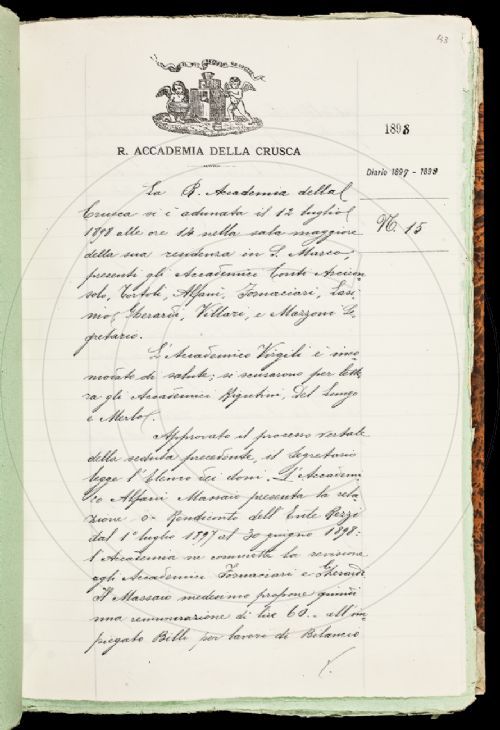 43
R. ACCADEMIA DELLA CRUSCA
1898
Diario 1897 - 1898
N. 15
La R. Accademia della
Crusca si è adunata il 12 luglio
1898 alle ore 14 nella sala maggiore
della sua residenza in S. Marco,
presenti gli Accademici Conti Arcicon-
solo, Tortoli, Alfani, Fornaciari, Lasi-
nio, Gherardi, Villari, e Mazzoni Se-
gretario.
L'Accademico Virgili è inco-
modato di salute; si scusarono per lette-
ra gli Accademici Rigutini, Del Lungo
e Merlo.
Approvato il processo verbale
della seduta precedente, il Segretario
legge l'Elenco dei doni. L'Accademi-
co Alfani Massaio presenta la rela-
zione o Rendiconto dell'Ente Rezzi
dal 1° luglio 1897 al 30 giugno 1898:
l'Accademia ne commette la revisione
agli Accademici Fornaciari e Gherardi.
Il Massaio medesimo propone quindi
una remunerazione di lire 60.- all'im-
piegato Billi per lavori di Bilancio